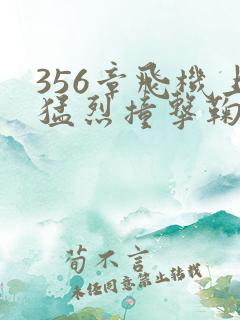 356章飛機上
猛烈撞擊鞠
荀不言
未经同意禁止转载